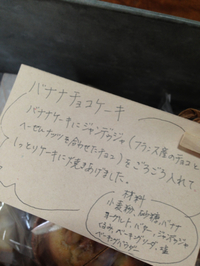 バナナチョコケーキ
バナナケーキにジャンドゥジャ(フランス産のチョコと
ヘーゼルナッツを合わせたチョコ)をごろごろ入れて
しっとりケーキに焼きあげました。
材料
小麦粉、砂糖、バナナ
ヨーグルト、バター、ジャンドゥジャ
たまご、ベーキングソーダ、塩
ベーキングパウダー